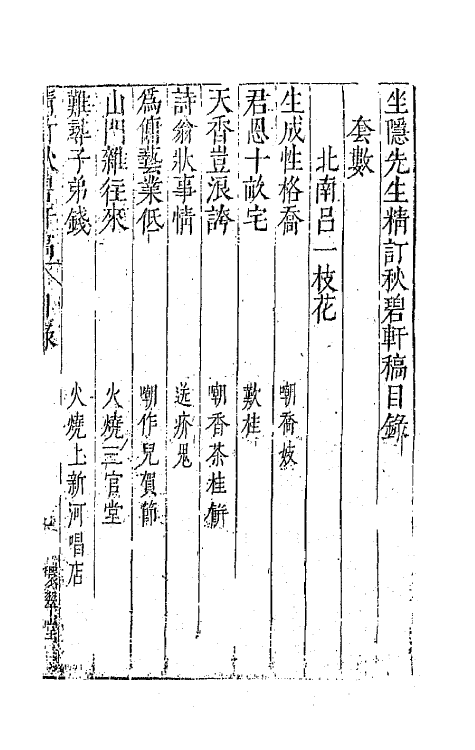 坐隱先生精訂秋碧軒稿目錄
套數
北南呂一枝花
生成性格喬　嘲喬妓
君恩十畝宅　歎桂
天香豈浪誇　嘲香茶桂餅
詩翁狀事情　送疥鬼
爲傭藝業低　嘲作兒賀節
山門雜往來　火燒三官堂
難尋子弟錢　火燒上新河唱店
精訂秋碧軒稿 目錄
環翠堂